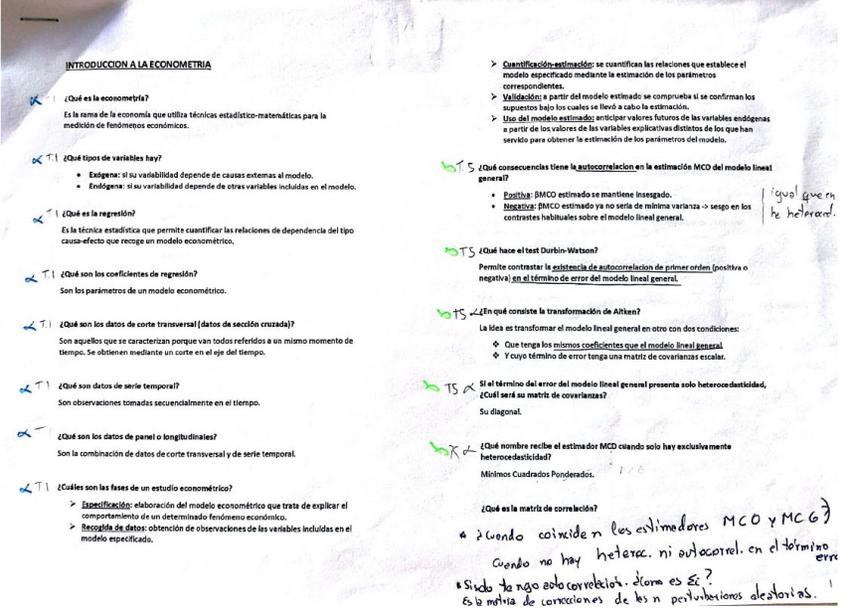 INTRODUCCION A LA ECONOMETRIA
T.1 ¿Qué es la econometría?
Es la rama de la economía que utiliza técnicas estadístico-matemáticas para la
medición de fenómenos económicos.
T.1 ¿Qué tipos de variables hay?
• Exógena: si su variabilidad depende de causas externas al modelo.
• Endógena: si su variabilidad depende de otras variables incluidas en el modelo.
T.1 ¿Qué es la regresión?
Es la técnica estadística que permite cuantificar las relaciones de dependencia del tipo
causa-efecto que recoge un modelo econométrico.
T.1 ¿Qué son los coeficientes de regresión?
Son los parámetros de un modelo econométrico.
T.1 ¿Qué son los datos de corte transversal (datos de sección cruzada)?
Son aquellos que se caracterizan porque van todos referidos a un mismo momento de
tiempo. Se obtienen mediante un corte en el eje del tiempo.
T1 ¿Qué son datos de serie temporal?
Son observaciones tomadas secuencialmente en el tiempo.
¿Qué son los datos de panel o longitudinales?
Son la combinación de datos de corte transversal y de serie temporal.
T1 ¿Cuáles son las fases de un estudio econométrico?
➢ Especificación: elaboración del modelo econométrico que trata de explicar el
comportamiento de un determinado fenómeno económico.
➢ Recogida de datos: obtención de observaciones de las variables incluidas en el
modelo especificado.
➢ Cuantificación-estimación: se cuantifican las relaciones que establece el
modelo especificado mediante la estimación de los parámetros
correspondientes.
➢ Validación: a partir del modelo estimado se comprueba si se confirman los
supuestos bajo los cuales se llevó a cabo la estimación.
➢ Uso del modelo estimado: anticipar valores futuros de las variables endógenas
a partir de los valores de las variables explicativas distintos de los que han
servido para obtener la estimación de los parámetros del modelo.
T.5 ¿Qué consecuencias tiene la autocorrelacion en la estimación MCO del modelo lineal
general?
• Positiva: βMCO estimado se mantiene insesgado.
• Negativa: βMCO estimado ya no sería de mínima varianza -> sesgo en los
contrastes habituales sobre el modelo lineal general.
igual que en
he heteroced.
T5 ¿Qué hace el test Durbin-Watson?
Permite contrastar la existencia de autocorrelacion de primer orden (positiva o
negativa) en el término de error del modelo lineal general.
T5 ¿En qué consiste la transformación de Aitken?
La idea es transformar el modelo lineal general en otro con dos condiciones:
❖ Que tenga los mismos coeficientes que el modelo lineal general
❖ Y cuyo término de error tenga una matriz de covarianzas escalar.
T5 Si el término del error del modelo lineal general presenta solo heterocedasticidad,
¿Cuál será su matriz de covarianzas?
Su diagonal.
¿Qué nombre recibe el estimador MCD cuando solo hay exclusivamente
heterocedasticidad?
Mínimos Cuadrados Ponderados.
¿Qué es la matriz de correlación?
* ¿Cuando coinciden los estimadores MCO y MCG?
Cuando no hay heteroc. ni autocorrel. en el término
error
* Si solo tengo autocorrelación. ¿como es Σ?
Es la matriz de correcciones de los n perturbaciones aleatorias.